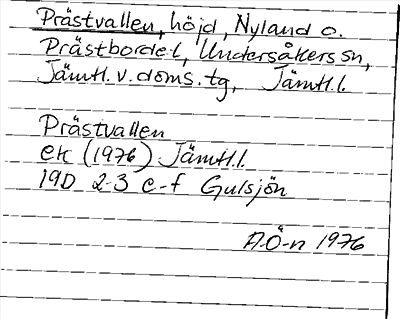 Prästvallen, höjd, Nyland o.
Prästbordet, Undersåkers sn,
Jämtl. v. doms. tg, Jämtl. l.
Prästvallen
ek (1976) Jämtl. l.
19D 2-3 e-f Gulsjön
A.Ö-n 1976